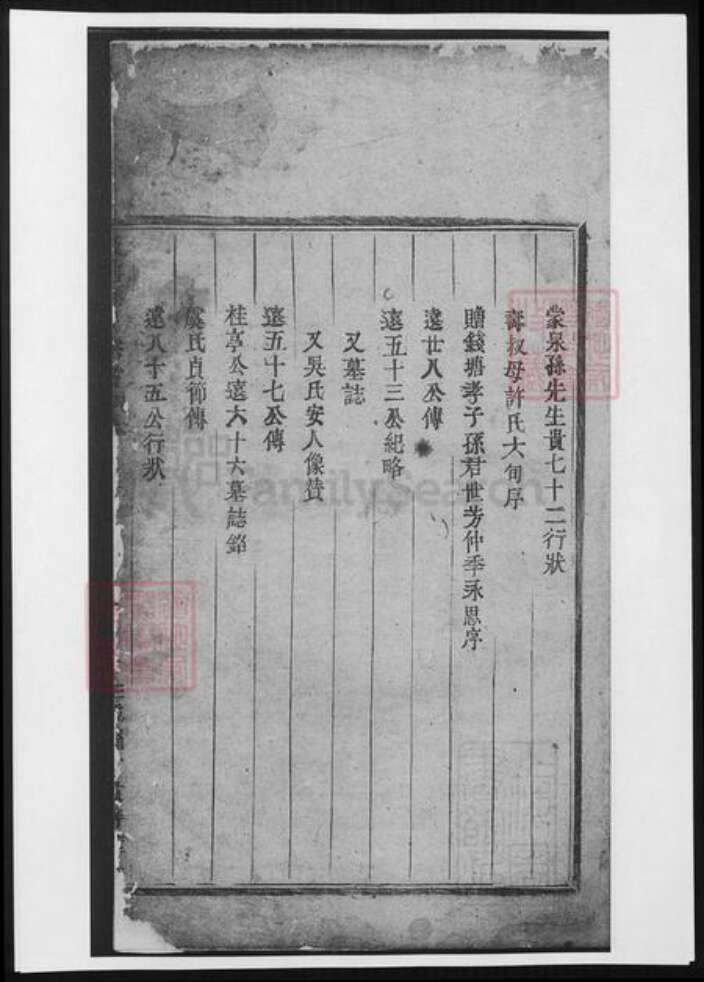 蒙泉孫先生貴七十二行狀
壽叔母許氏六旬序
贈錢塘孝子孫君世芳仲季永思序
遠廿八公傳
遠五十三公紀略
又墓誌
又吳氏安人像贊
遠五十七公傳
桂亭公遠六十六墓誌銘
虞氏貞節傳
遠八十五公行狀
FamilySearch